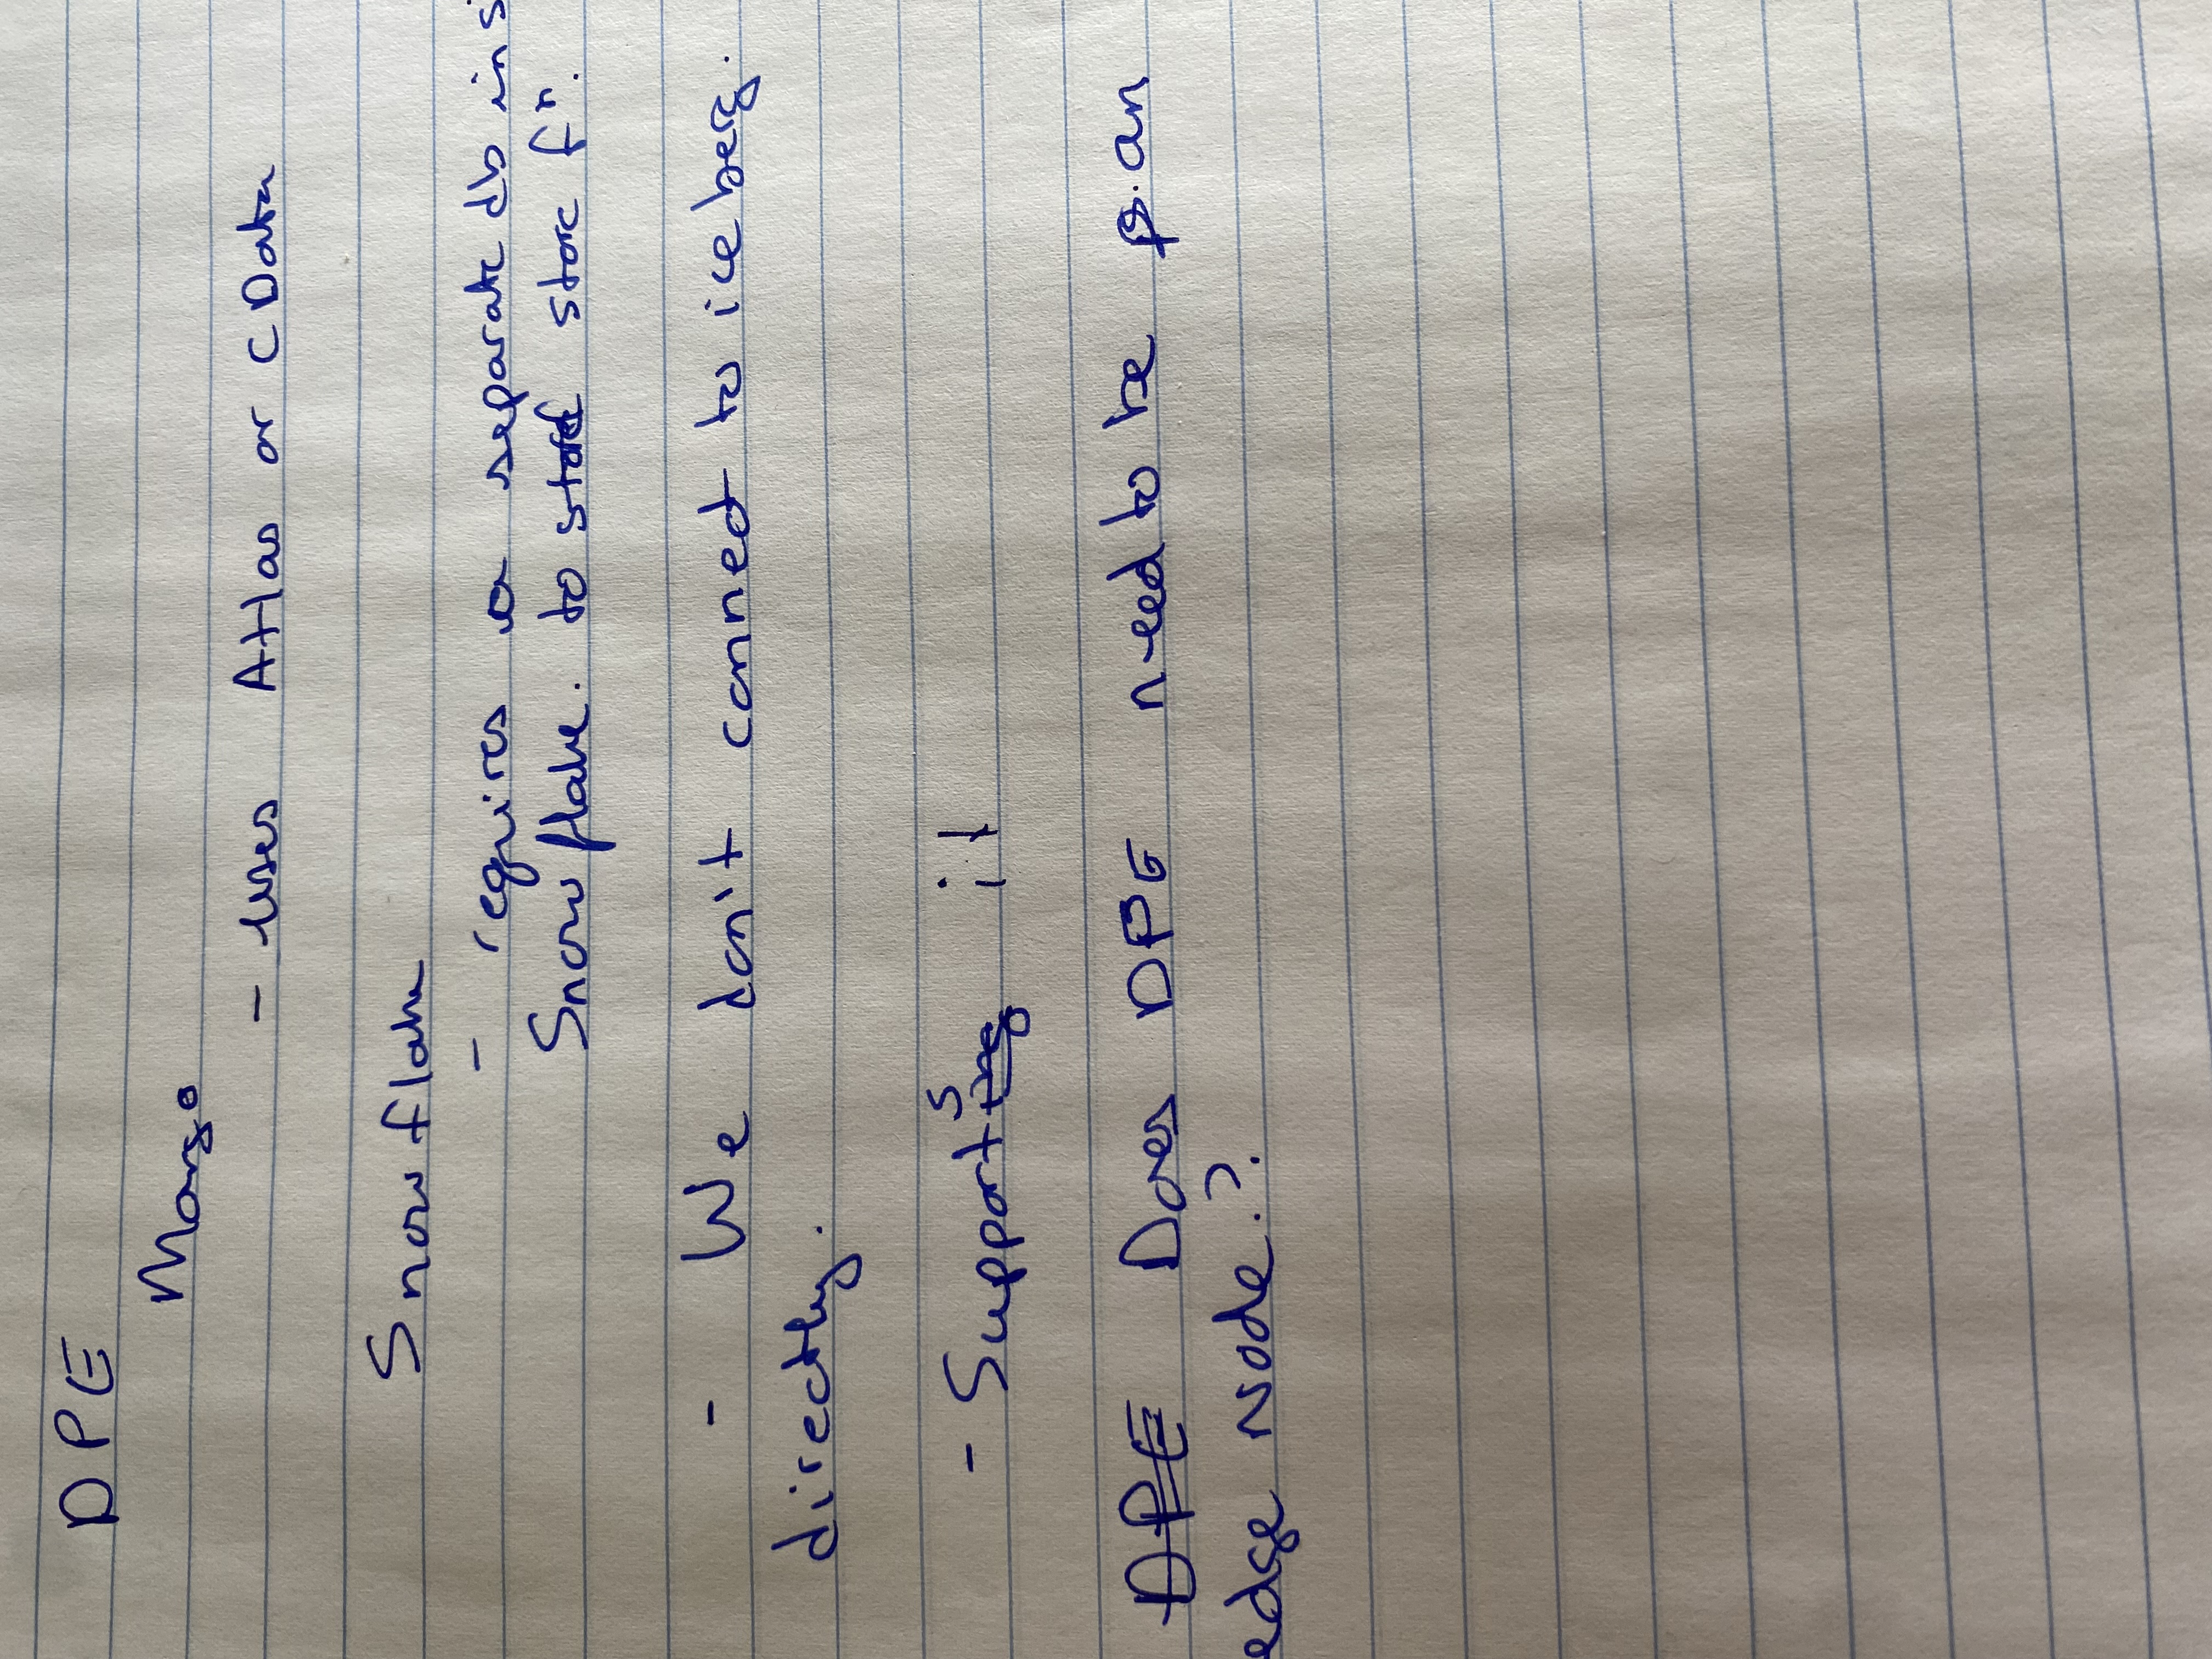 DPE
Mongo
- uses Atlas or CData
Snowflake
- requires a separate db in
Snowflake. to store fⁿ.
- We don't connect to iceberg.
directly.
- Supports it
DPE Does DPE need to be an
edge Node.?